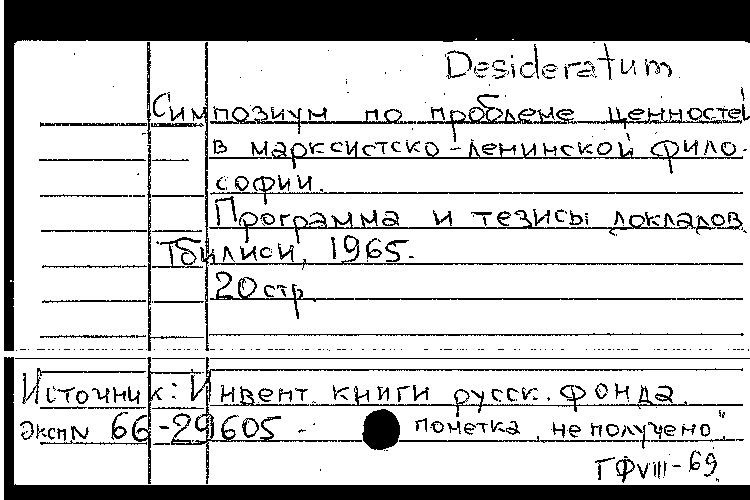 Desideratum
Симпозиум по проблеме ценностей
в марксистско-ленинской фило-
софии.
Программа и тезисы докладов
Тбилиси, 1965.
20 стр.
Источник: Инвент. книги русск. фонда.
Эксп N 66-29605 - пометка „не получено”.
ГФVIII-69.